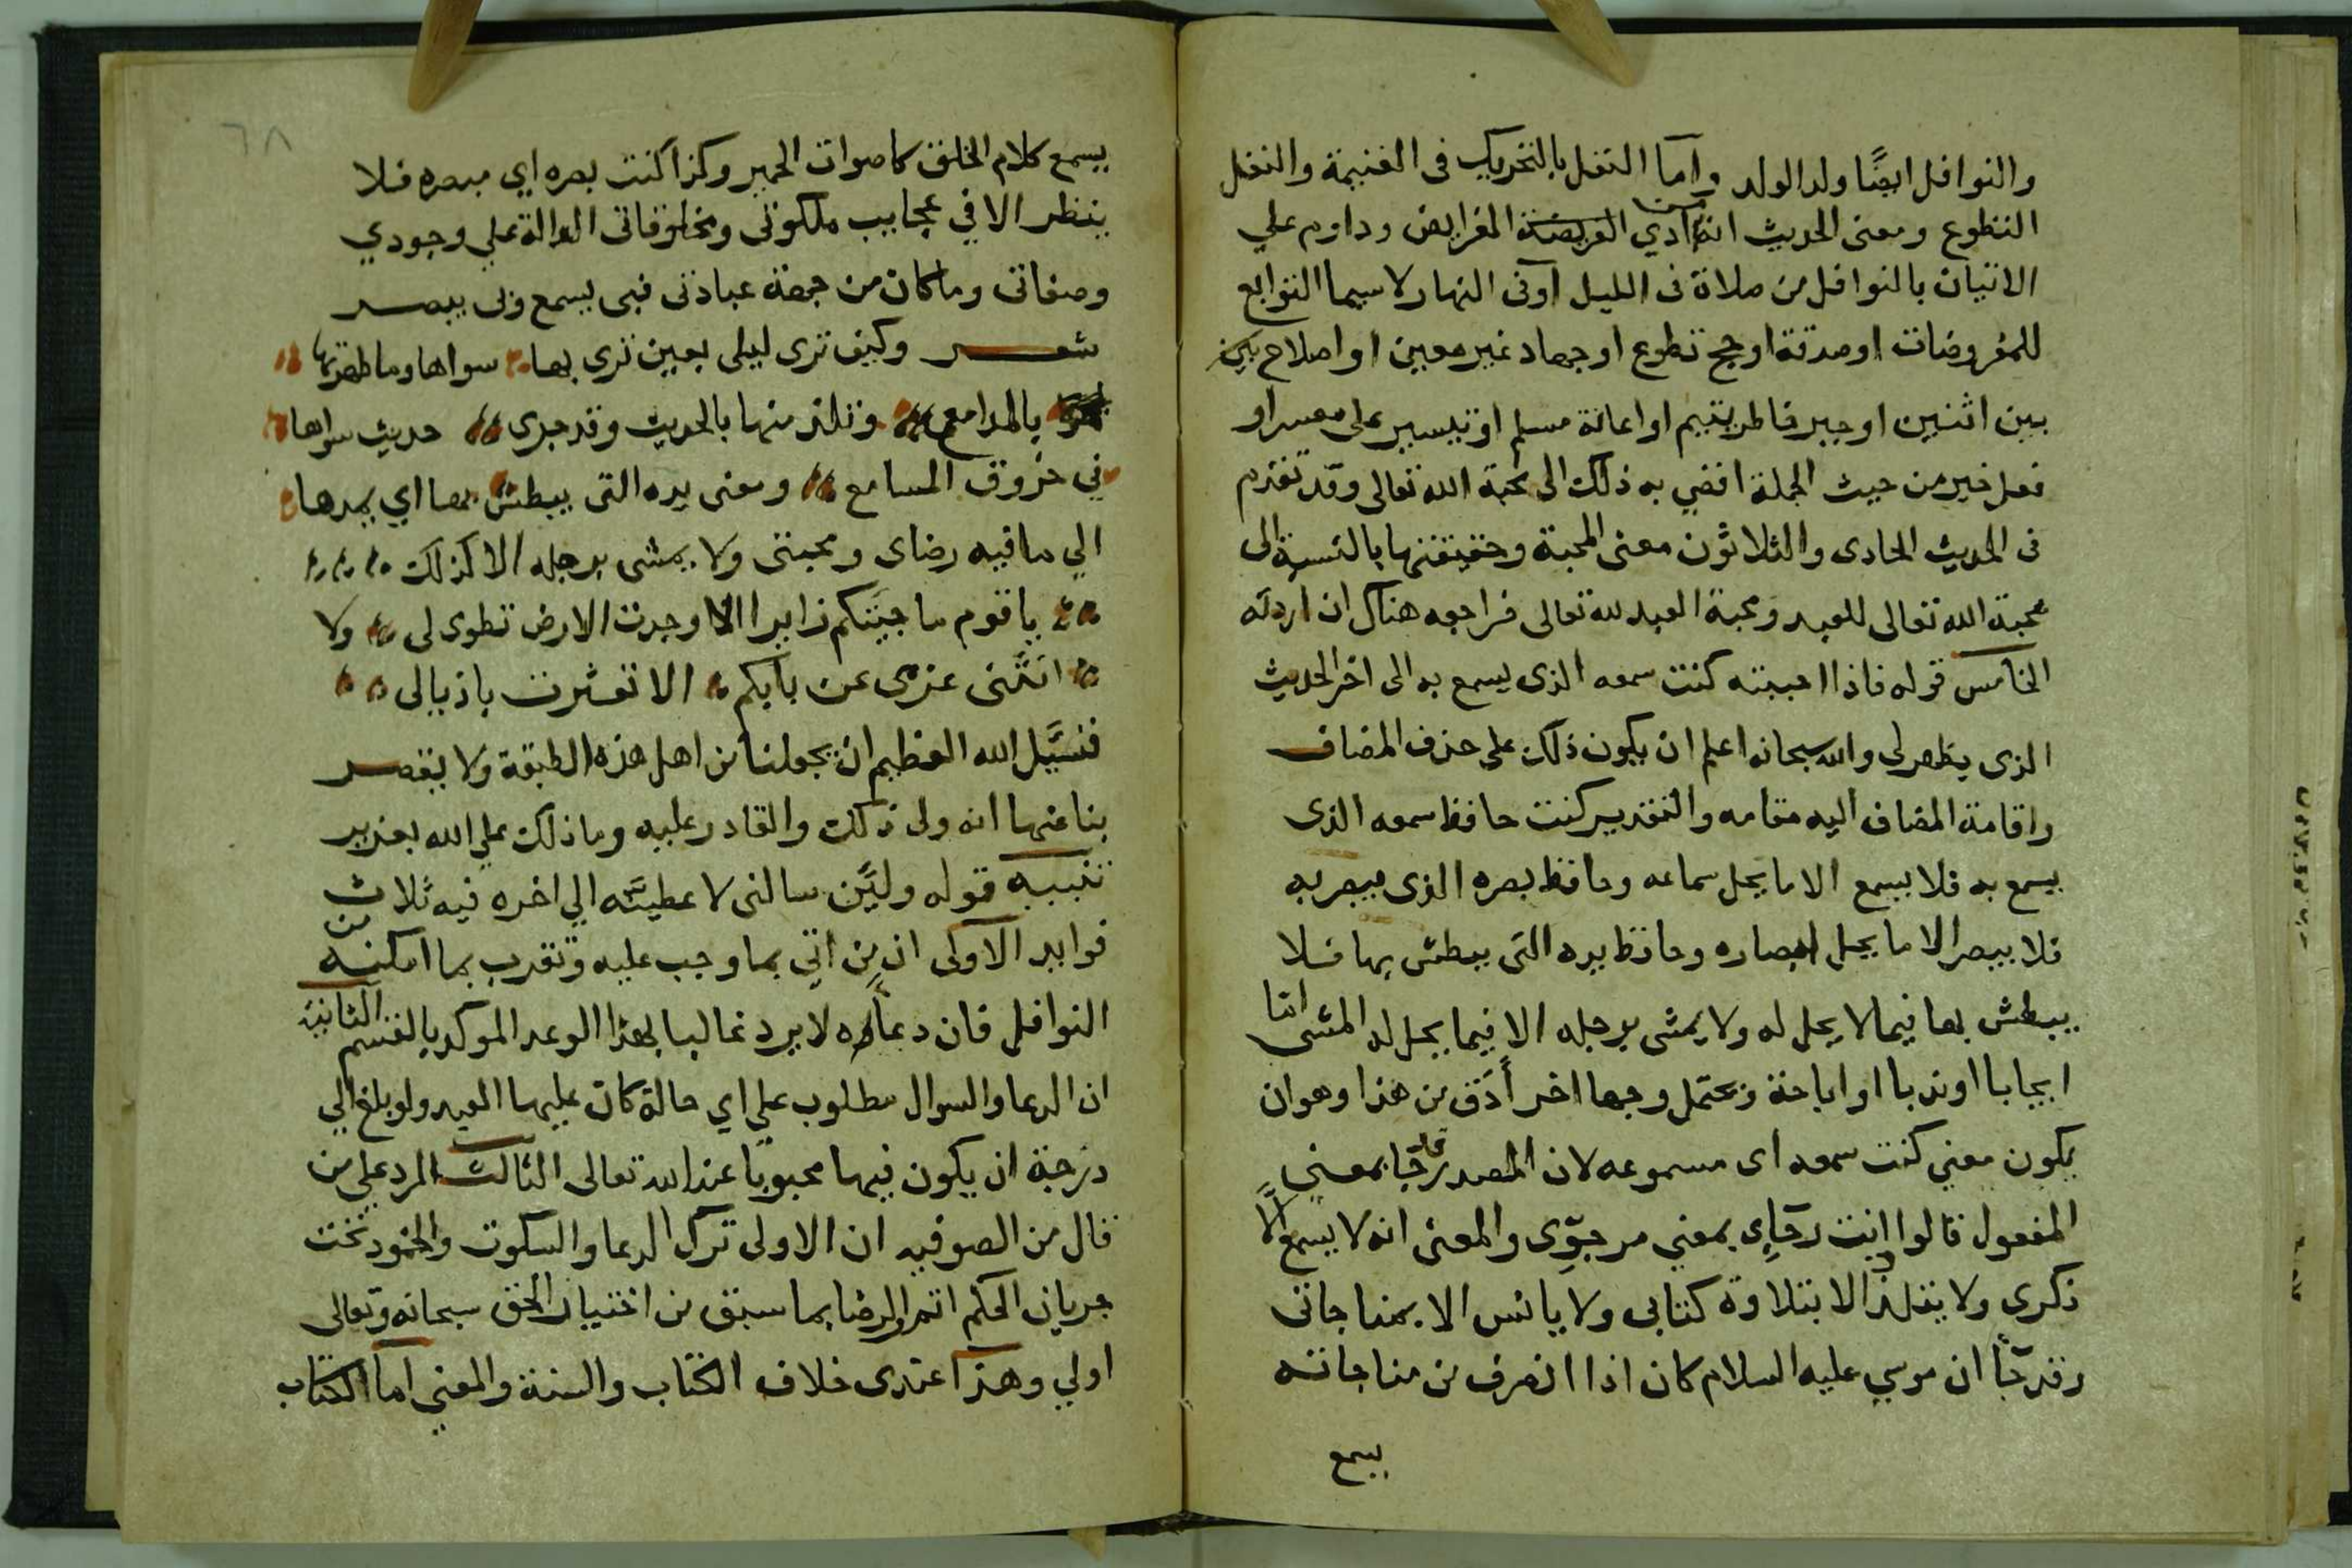 والنوافل ايضًا ولد الولد واما النفل بالتحريك فى الغنيمة والنفل
التطوع ومعنى الحديث انه من ادي الفرايض وداوم علي
الاتيان بالنوافل من صلاة فى الليل او فى النهار لا سيما التوابع
للمفروضات او صدقة او حج تطوع او جهاد غير معين او اصلاح
بين اثنين او جبر خاطر يتيم او اعانة مسلم او تيسير على معسر او
فعل خير من حيث الجملة افضي به ذلك الى محبة الله تعالى وقد تقدم
فى الحديث الحادى والثلاثون معنى المحبة وحقيقتها بالنسبة الى
محبة الله تعالى للعبد ومحبة العبد لله تعالى فراجعه هناك ان اردته
الخامس قوله فاذا احببته كنت سمعه الذى يسمع به الى اخر الحديث
الذى يظهر لى والله سبحانه اعلم ان يكون ذلك على حذف المضاف
واقامة المضاف اليه مقامه والتقدير كنت حافظ سمعه الذى
يسمع به فلا يسمع الا ما يحل سماعه وحافظ بصره الذى يبصر به
فلا يبصر الا ما يحل ابصاره وحافظ يده التى يبطش بها فلا
يبطش بها فيما لا يحل له ولا يمشى برجله الا فيما يحل له المشى اما
ايجابا او ندبا او اباحة ويحتمل وجها اخر أدق من هذا وهو ان
يكون معني كنت سمعه اى مسموعه لان المصدر قد جا بمعني
المفعول قالوا انت رجاي بمعني مرجوى والمعنى انه لا يسمع الا
ذكرى ولا يتلذذ الا بتلاوة كتابى ولا يانس الا بمناجاتى
وقد جأ ان موسي عليه السلام كان اذا انصرف من مناجاته
يسمع
٦٨
يسمع كلام الخلق كاصوات الحمير وكذا كنت بصره اي مبصره فلا
ينظر الا في عجايب ملكوتى ومخلوقاتى الدالة علي وجودي
وصفاتى وما كان من جهة عبادتى فبى يسمع وبى يبصر
شعر وكيف ترى ليلى بعين ترى بها سواها وما طهرتها
بالمدامع وتلتذ منها بالحديث وقد جرى حديث سواها
في خروق المسامع ومعنى يده التى يبطش بها اي يمدها
الي ما فيه رضاى ومحبتى ولا يمشى برجله الا كذلك
يا قوم ما جيتكم زايرا الا وجدت الارض تطوى لى ولا
انثنى عزمى عن بابكم الا تعثرت باذيالى
فنسيل الله العظيم ان يجعلنا من اهل هذه الطبقة ولا يقصر
بنا عنها انه ولى ذلك والقادر عليه وما ذلك علي الله بعزيز
تنبيه قوله وليّن سالنى لاعطينّه الي اخره فيه ثلاث
فوايد الاولى ان من اتي بما وجب عليه وتقرب بما امكنه من
النوافل فان دعاءه لا يرد غالبا لهذا الوعد الموكد بالقسم الثانية
ان الدعا والسوال مطلوب علي اي حالة كان عليها العبد ولو بلغ الي
درجة ان يكون فيها محبوبا عند الله تعالى الثالث الرد علي من
قال من الصوفيه ان الاولى ترك الدعا والسكوت والخمود تحت
جريان الحكم اتم والرضا بما سبق من اختيار الحق سبحانه وتعالى
اولي وهذا عندى خلاف الكتاب والسنة والمعني اما الكتاب